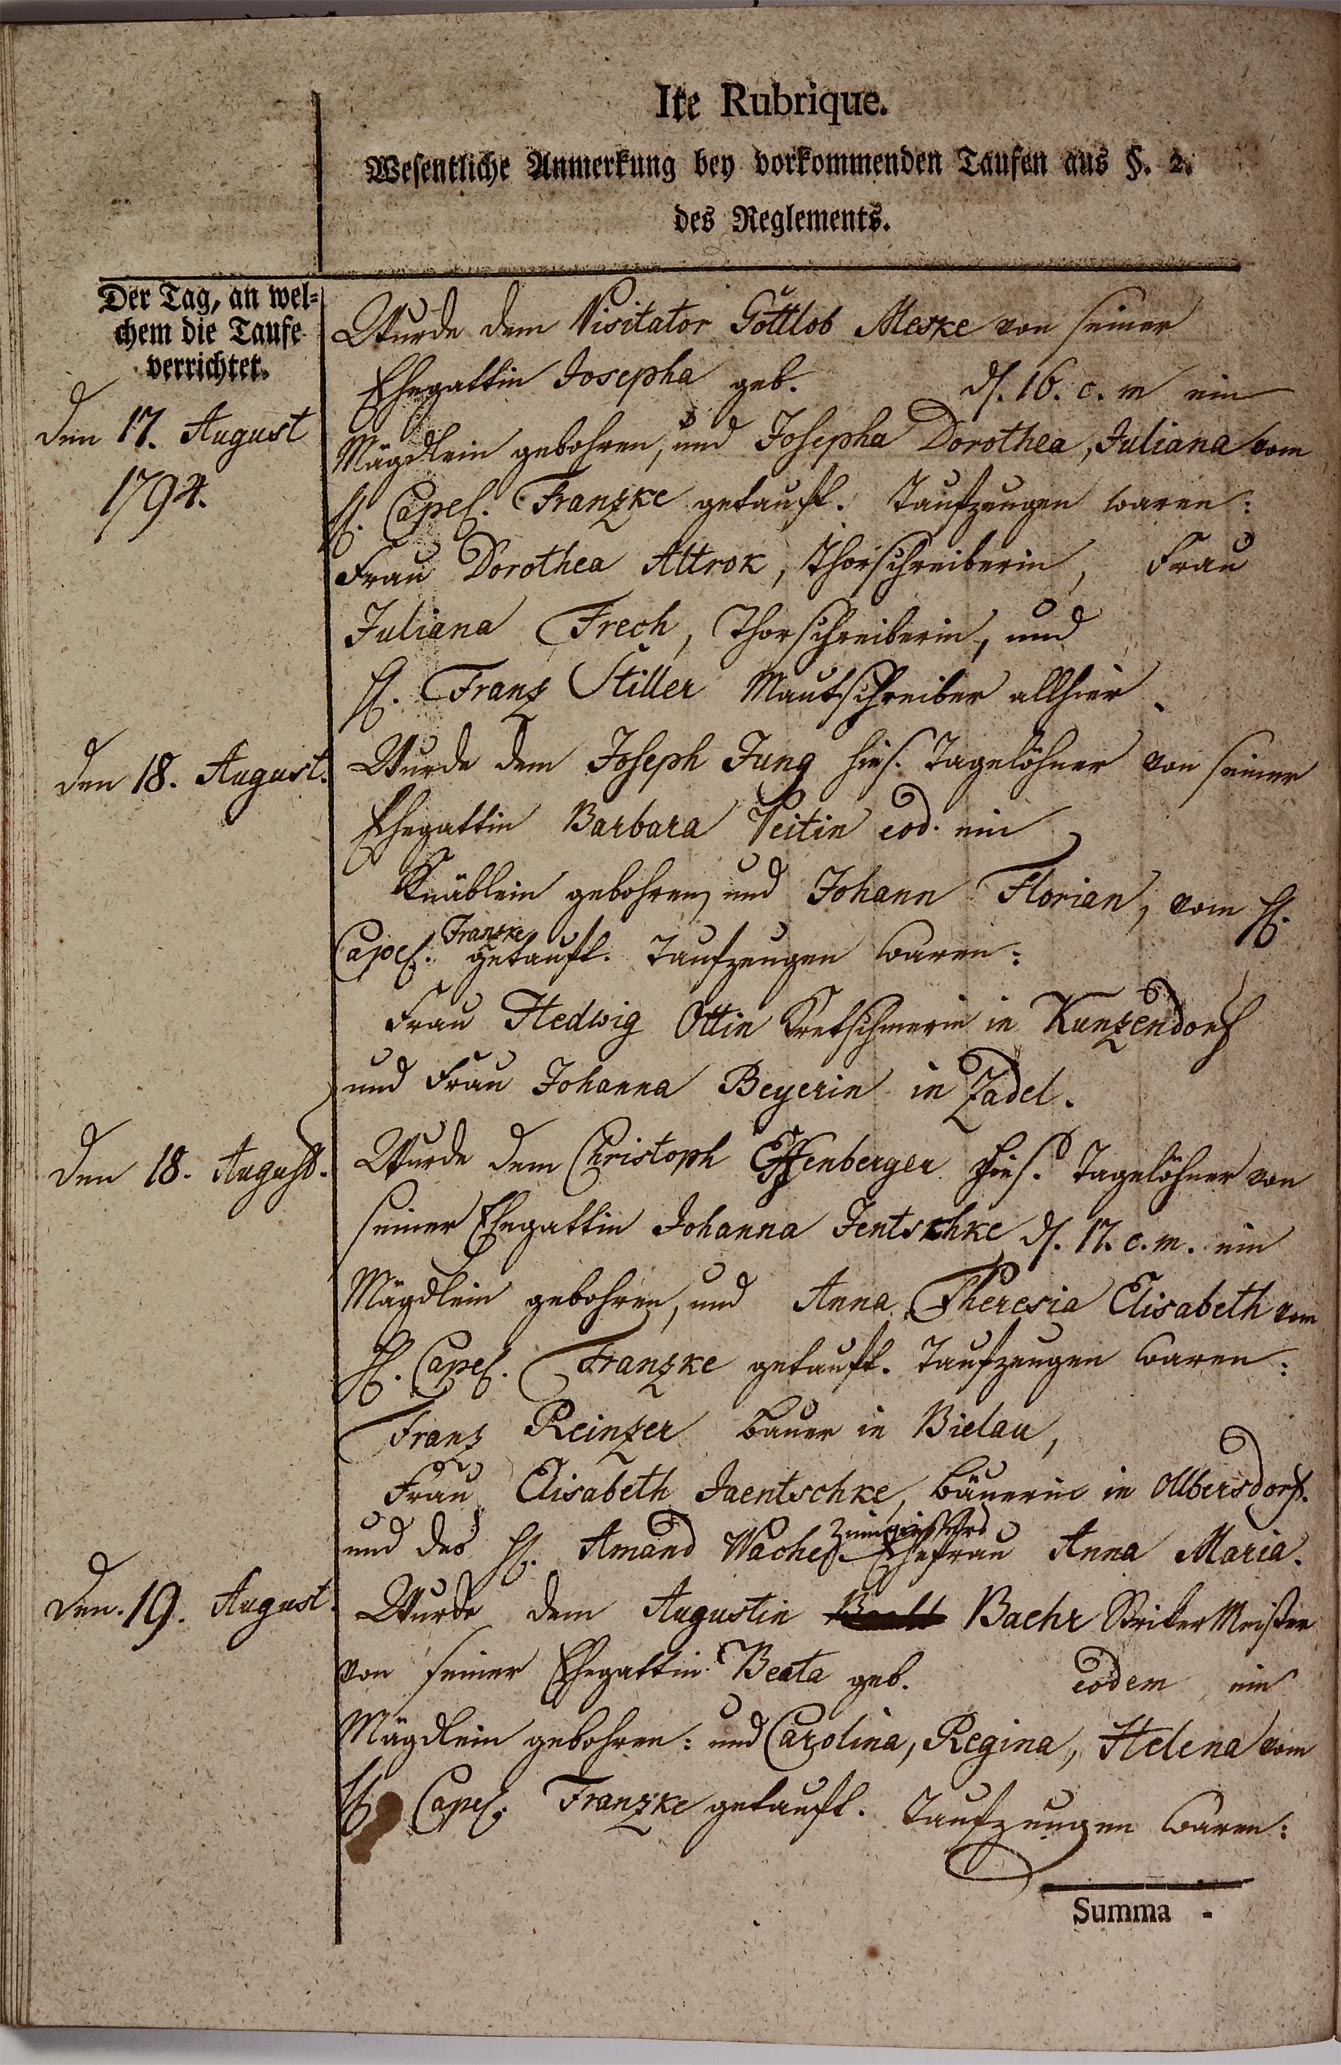 Ite Rubrique.
Wesentliche Anmerkung bey vorkommenden Taufen aus §. 2.
des Reglements.
Der Tag, an wel=
chem die Taufe
verrichtet.
den 17. August
1794.
Wurde dem Visitator Gottlob Meske von seiner
Ehegattin Josepha geb. d. 16. c. m ein
Mägdlein gebohren, und Josepha Dorothea, Juliana vom
H. Capel. Franzke getauft. Taufzeugen waren:
Frau Dorothea Attrok, Thorschreiberin, Frau
Juliana Frech, Thorschreiberin, und
H. Franz Stiller Mautschreiber allhier.
den 18. August.
Wurde dem Joseph Jung hies. Tagelöhner von seiner
Ehegattin Barbara Veitin eod. ein
Knäblein gebohren, und Johann Florian, vom H.
Capel. Franzke getauft. Taufzeugen waren:
Frau Hedwig Ottin Kretschmerin in Kunzendorf
und Frau Johanna Beyerin in Zadel.
den 18. August.
Wurde dem Christoph Effenberger hies. Tagelöhner von
seiner Ehegattin Johanna Jentschke d. 17. c. m. ein
Mägdlein gebohren, und Anna Theresia Elisabeth vom
H. Capel. Franzke getauft. Taufzeugen waren:
Franz Reinzer Bauer in Bielau,
Frau Elisabeth Jaentschke, Bäuerin in Olbersdorf.
und des H. Amand Wache Ehefrau Anna Maria.
den. 19. August.
Wurde dem Augustin Baehr Meister
von seiner Ehegattin Beata geb. eodem ein
Mägdlein gebohren: und Carolina, Regina, Helena vom
H. Capel. Franzke getauft. Taufzeugen waren:
Summa -